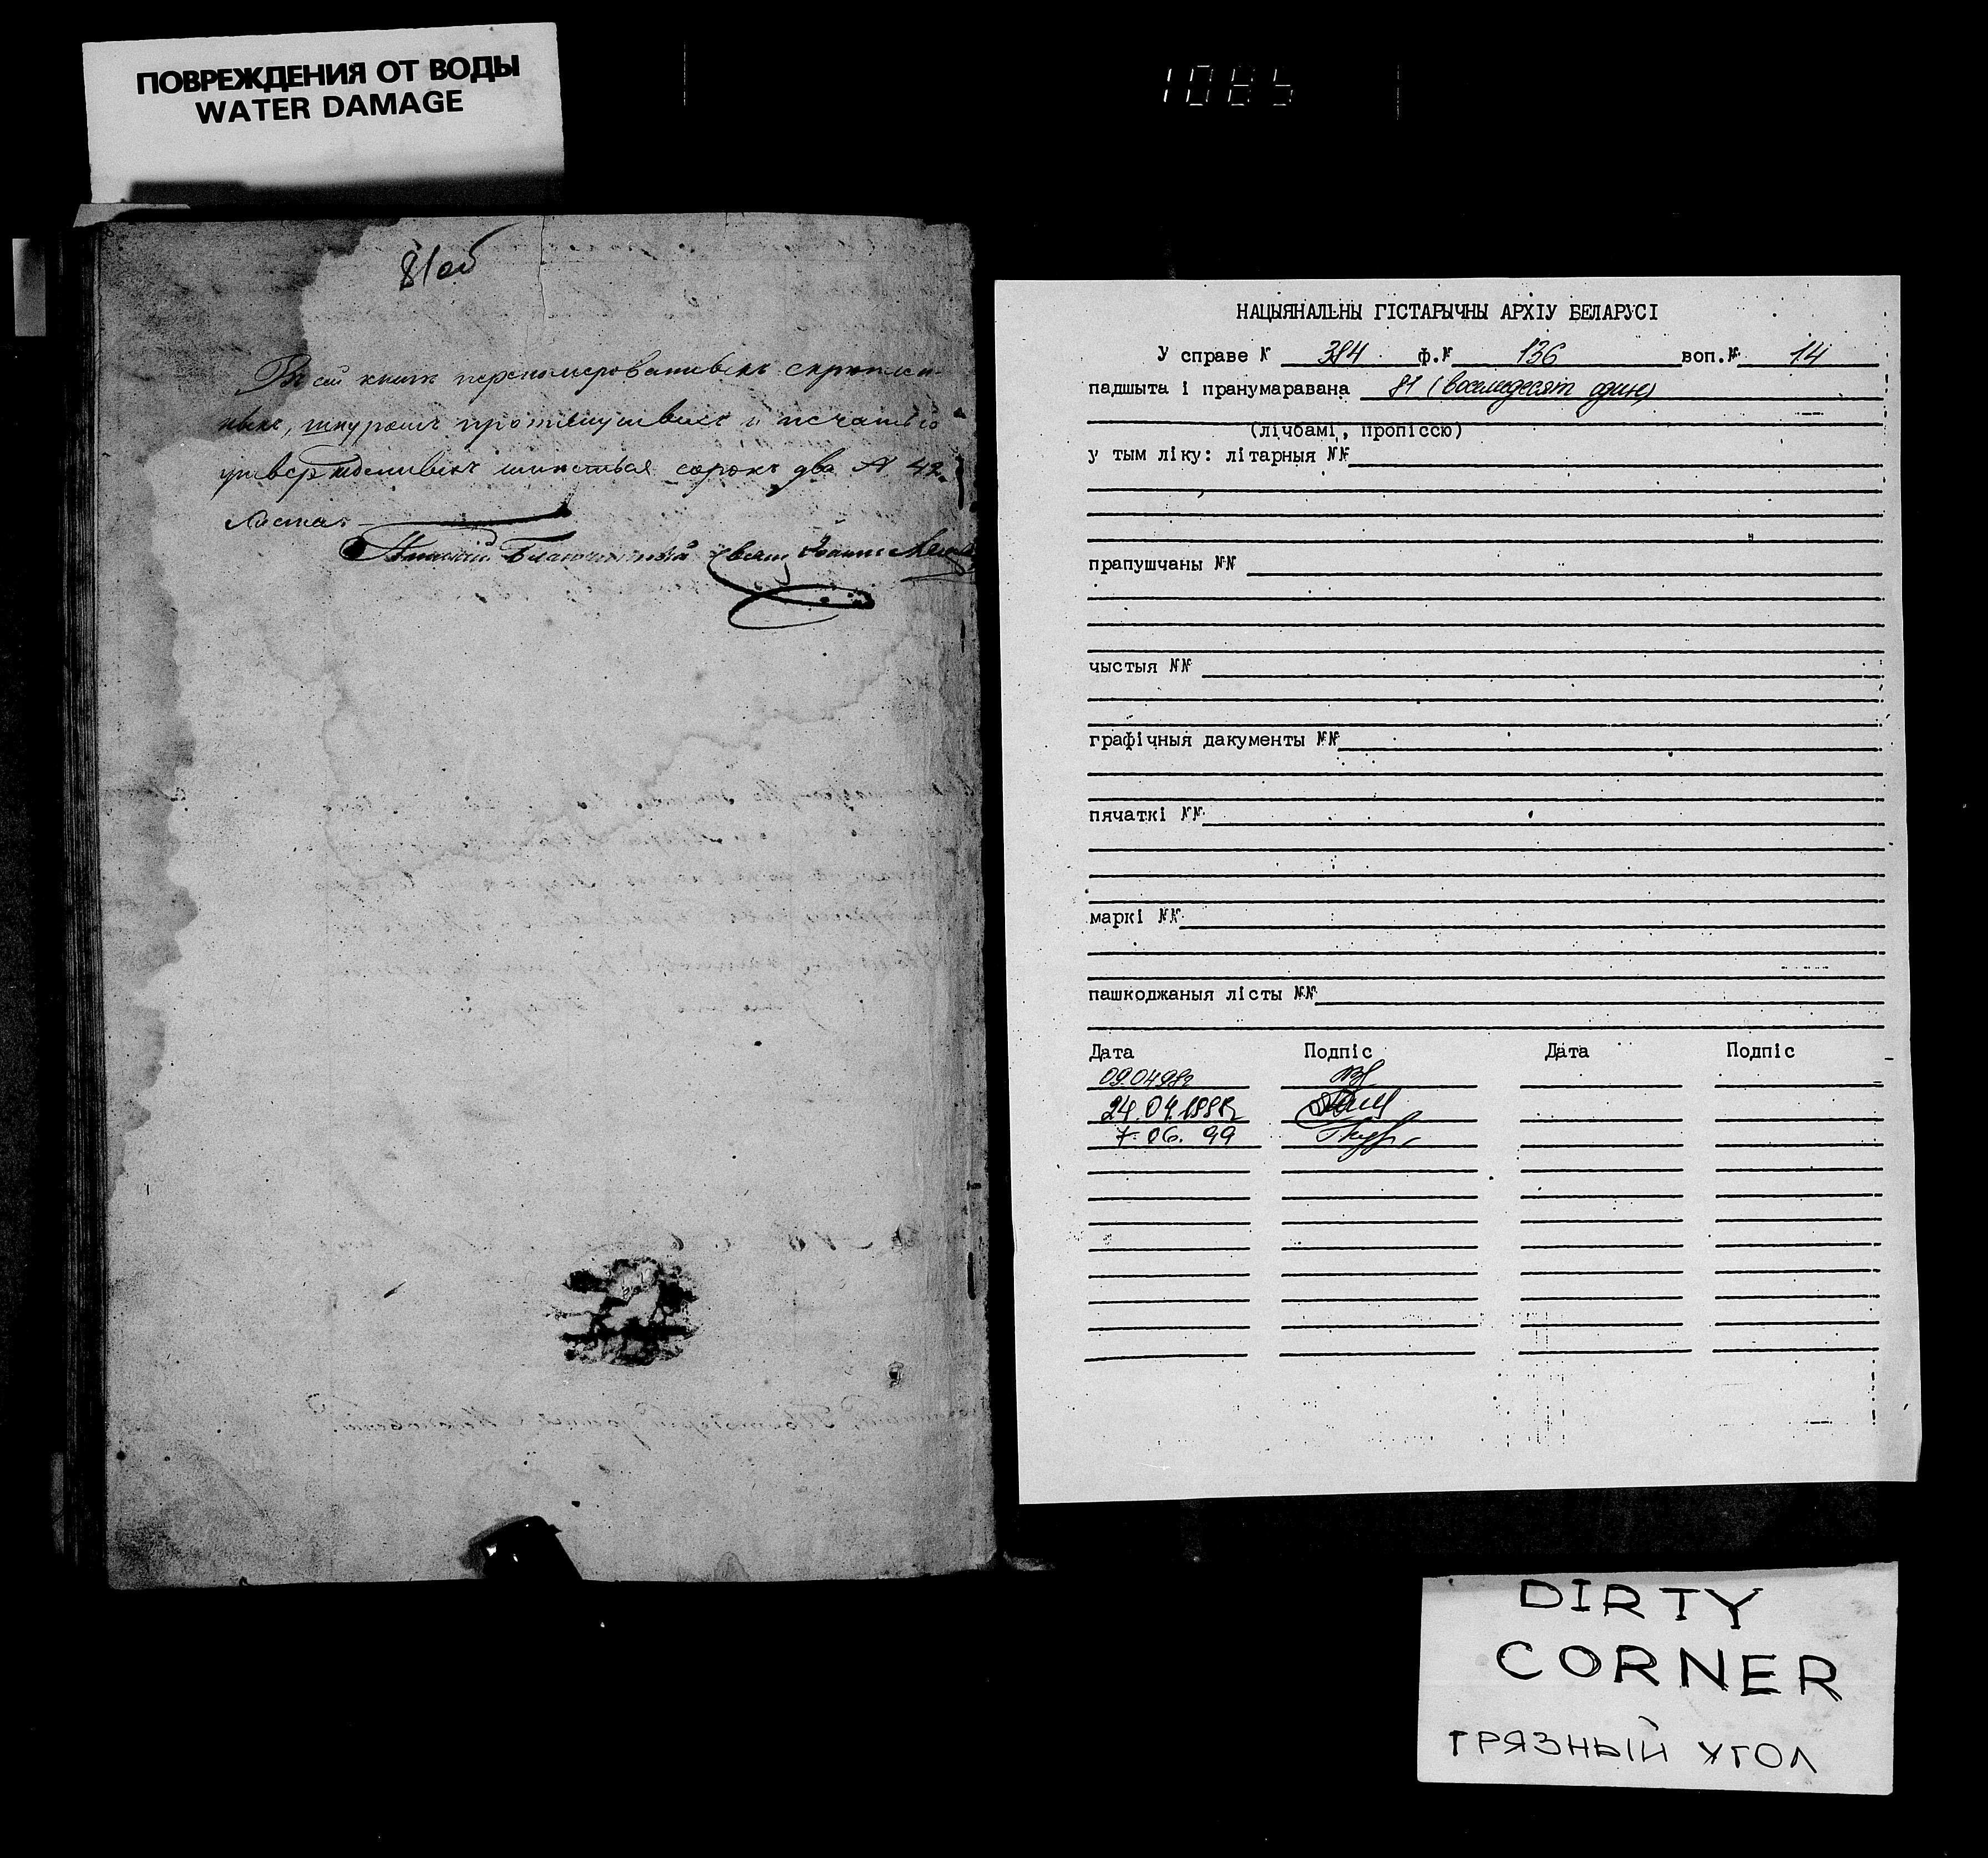 ПОВРЕЖДЕНИЯ ОТ ВОДЫ
WATER DAMAGE
1085
81об
Въ сей книгѣ перенумерованныхъ скрѣплен-
ныхъ, шнуромъ протянутыхъ и печатью
утвержденныхъ листовъ сорокъ два № 42
листа
НАЦЫЯНАЛЬНЫ ГІСТАРЫЧНЫ АРХІУ БЕЛАРУСІ
У справе № 384 ф.№ 136 воп.№ 14
падшыта і пранумаравана 81 (восемдесят один)
(лічбамі, пропіссю)
у тым ліку: літарныя №№
прапушчаны №№
чыстыя №№
графічныя дакументы №№
пячаткі №№
маркі №№
пашкоджаныя лісты №№
Дата Подпіс Дата Подпіс
09.04.98г
24.04.1998г
7.06.99
DIRTY
CORNER
ГРЯЗНЫЙ УГОЛ